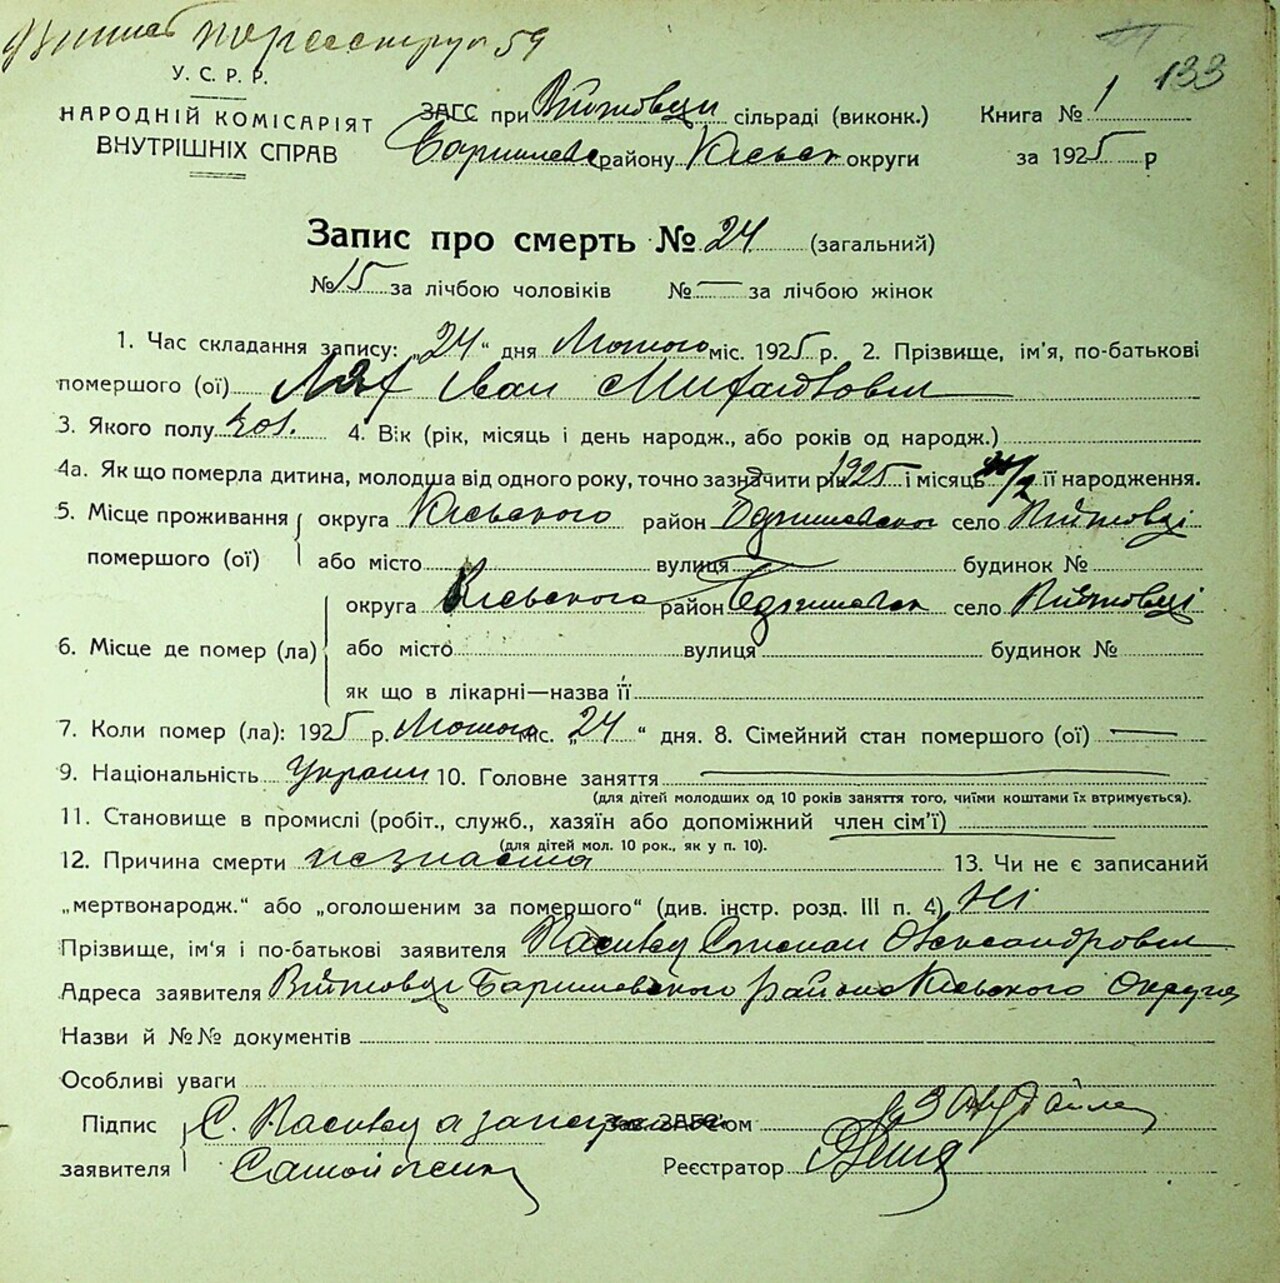 59
133
У. С. Р. Р.
НАРОДНІЙ КОМІСАРІЯТ
ВНУТРІШНІХ СПРАВ
ЗАГС при Війтовци сільраді (виконк.)
Баришевс району Київськ округи
Книга № 1
за 1925 р
Запис про смерть № 24 (загальний)
№ 15 за лічбою чоловіків № — за лічбою жінок
1. Час складання запису: „24“ дня Лютого міс. 1925 р. 2. Прізвище, ім'я, по-батькові
помершого (ої) Іван Михайлович
3. Якого полу чол. 4. Вік (рік, місяць і день народж., або років од народж.)
4а. Як що померла дитина, молодша від одного року, точно зазначити рік 1925 і місяць її народження.
5. Місце проживання помершого (ої) округа Київського район Баришевськ село Війтовці
або місто вулиця — будинок №
6. Місце де помер (ла) округа Київського район Баришевськ село Війтовці
або місто вулиця будинок №
як що в лікарні—назва її
7. Коли помер (ла): 1925 р. Лютого міс. „24“ дня. 8. Сімейний стан помершого (ої) —
9. Національність Україн 10. Головне заняття —
(для дітей молодших од 10 років заняття того, чиїми коштами їх втримується).
11. Становище в промислі (робіт., служб., хазяїн або допоміжний член сім'ї)
(для дітей мол. 10 рок., як у п. 10).
12. Причина смерти незнаєма 13. Чи не є записаний
„мертвонародж.“ або „оголошеним за помершого“ (див. інстр. розд. III п. 4) Ні
Прізвище, ім'я і по-батькові заявителя Степан Олександрович
Адреса заявителя Війтовци Баришевського району Київського Округи
Назви й №№ документів
Особливі уваги
Підпис заявителя С. Зав. ЗАГС'ом
Реєстратор